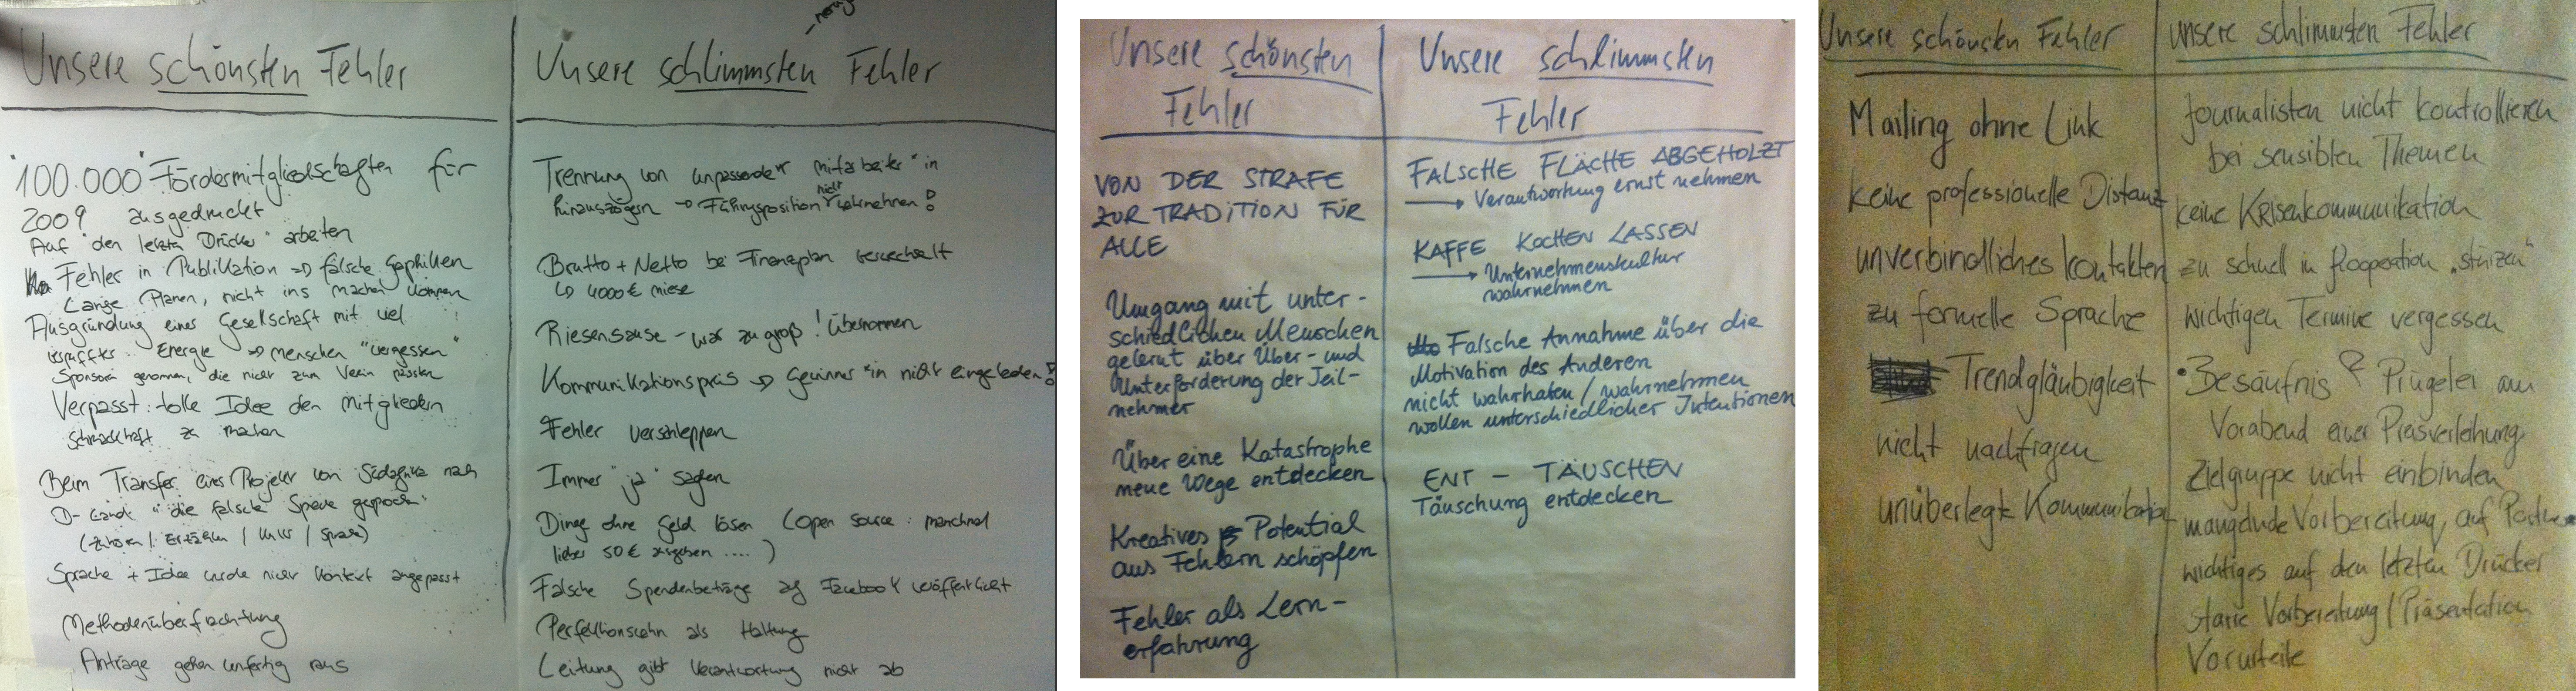 Unsere schönsten Fehler
"100.000" Fördermitgliedschaften für
2009 ausgedruckt
Auf "den letzten Drücker" arbeiten
Fehler in Publikation => falsche Graphiken
Lange Planen, nicht ins machen kommen
Ausgründung einer Gesellschaft mit viel
Energie => Menschen "vergessen"
Sponsoren genommen, die nicht zum Verein passten
Verpasst: tolle Idee den Mitgliedern
schmackhaft zu machen
Beim Transfer eines Projekts von Südafrika nach
D-Land "die falsche Sprache gesprochen"
(Zuhören / Erzählen /
Sprache + Idee wurde nicht Kontext angepasst
Methodenüberfrachtung
Anträge gehen unfertig raus
Unsere schlimmsten Fehler
Trennung von unpassender Mitarbeiter*in
hinauszögern -> Führungsposition nicht wahrnehmen!
Brutto + Netto bei Finanzplan verwechselt
↳ 4000€ miese
Riesensause - war zu groß! Übernommen
Kommunikationspreis -> Gewinner*in nicht eingeladen!
Fehler verschleppen
Immer "ja" sagen
Dinge ohne Geld lösen (open source: manchmal
lieber 50€ ausgeben ....)
Falsche Spendenbeträge auf Facebook veröffentlicht
Perfektionswahn als Haltung
Leitung gibt Verantwortung nicht ab
Unsere schönsten
Fehler
VON DER STRAFE
ZUR TRADITION FÜR
ALLE
Umgang mit unter-
schiedlichen Menschen
gelernt über Über- und
Unterforderung der Teil-
nehmer
Über eine Katastrophe
neue Wege entdecken
Kreatives Potential
aus Fehlern schöpfen
Fehler als Lern-
erfahrung
Unsere schlimmsten
Fehler
FALSCHE FLÄCHE ABGEHOLZT
→ Verantwortung ernst nehmen
KAFFE KOCHEN LASSEN
→ Unternehmenskultur
wahrnehmen
Falsche Annahme über die
Motivation des Anderen
nicht wahrhaben / wahrnehmen
wollen unterschiedlicher Intentionen
ENT - TÄUSCHEN
Täuschung entdecken
Unsere schönsten Fehler
Mailing ohne Link
keine professionelle Distanz
unverbindliches kontakten
zu formelle Sprache
Trendgläubigkeit
nicht nachfragen
unüberlegte Kommunikation
unsere schlimmsten Fehler
Journalisten nicht kontrollieren
bei sensiblen Themen
keine Krisenkommunikation
zu schnell in Kooperation „stürzen“
wichtigen Termine vergessen
• Besäufnis & Prügelei am
Vorabend einer Preisverleihung
Zielgruppe nicht einbinden
mangelnde Vorbereitung, auf Partner
wichtiges auf den letzten Drücker
starre Vorbereitung / Präsentation
Vorurteile